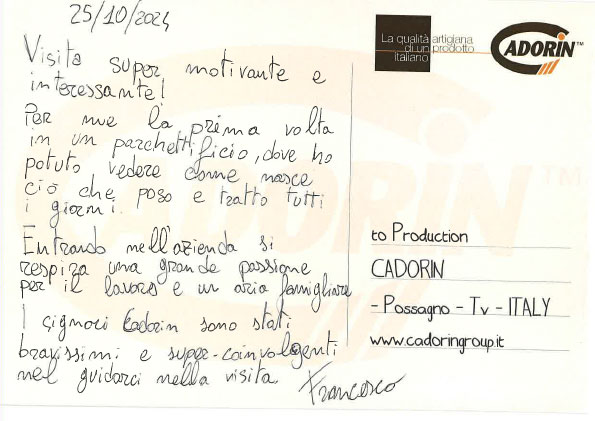 25/10/2024
Visita super motivante e
interessante!
Per me la prima volta
in un parchettificio, dove ho
potuto vedere come nasce
ciò che poso e tratto tutti
i giorni.
Entrando nell'azienda si
respira una grande passione
per il lavoro e un aria famigliare
I signori Cadorin sono stati
bravissimi e super-coinvolgenti
nel guidarci nella visita.
Francesco
La qualità artigiana
di un prodotto
italiano
CADORIN™
to Production
CADORIN
- Possagno - Tv - ITALY
www.cadoringroup.it
CADORIN™